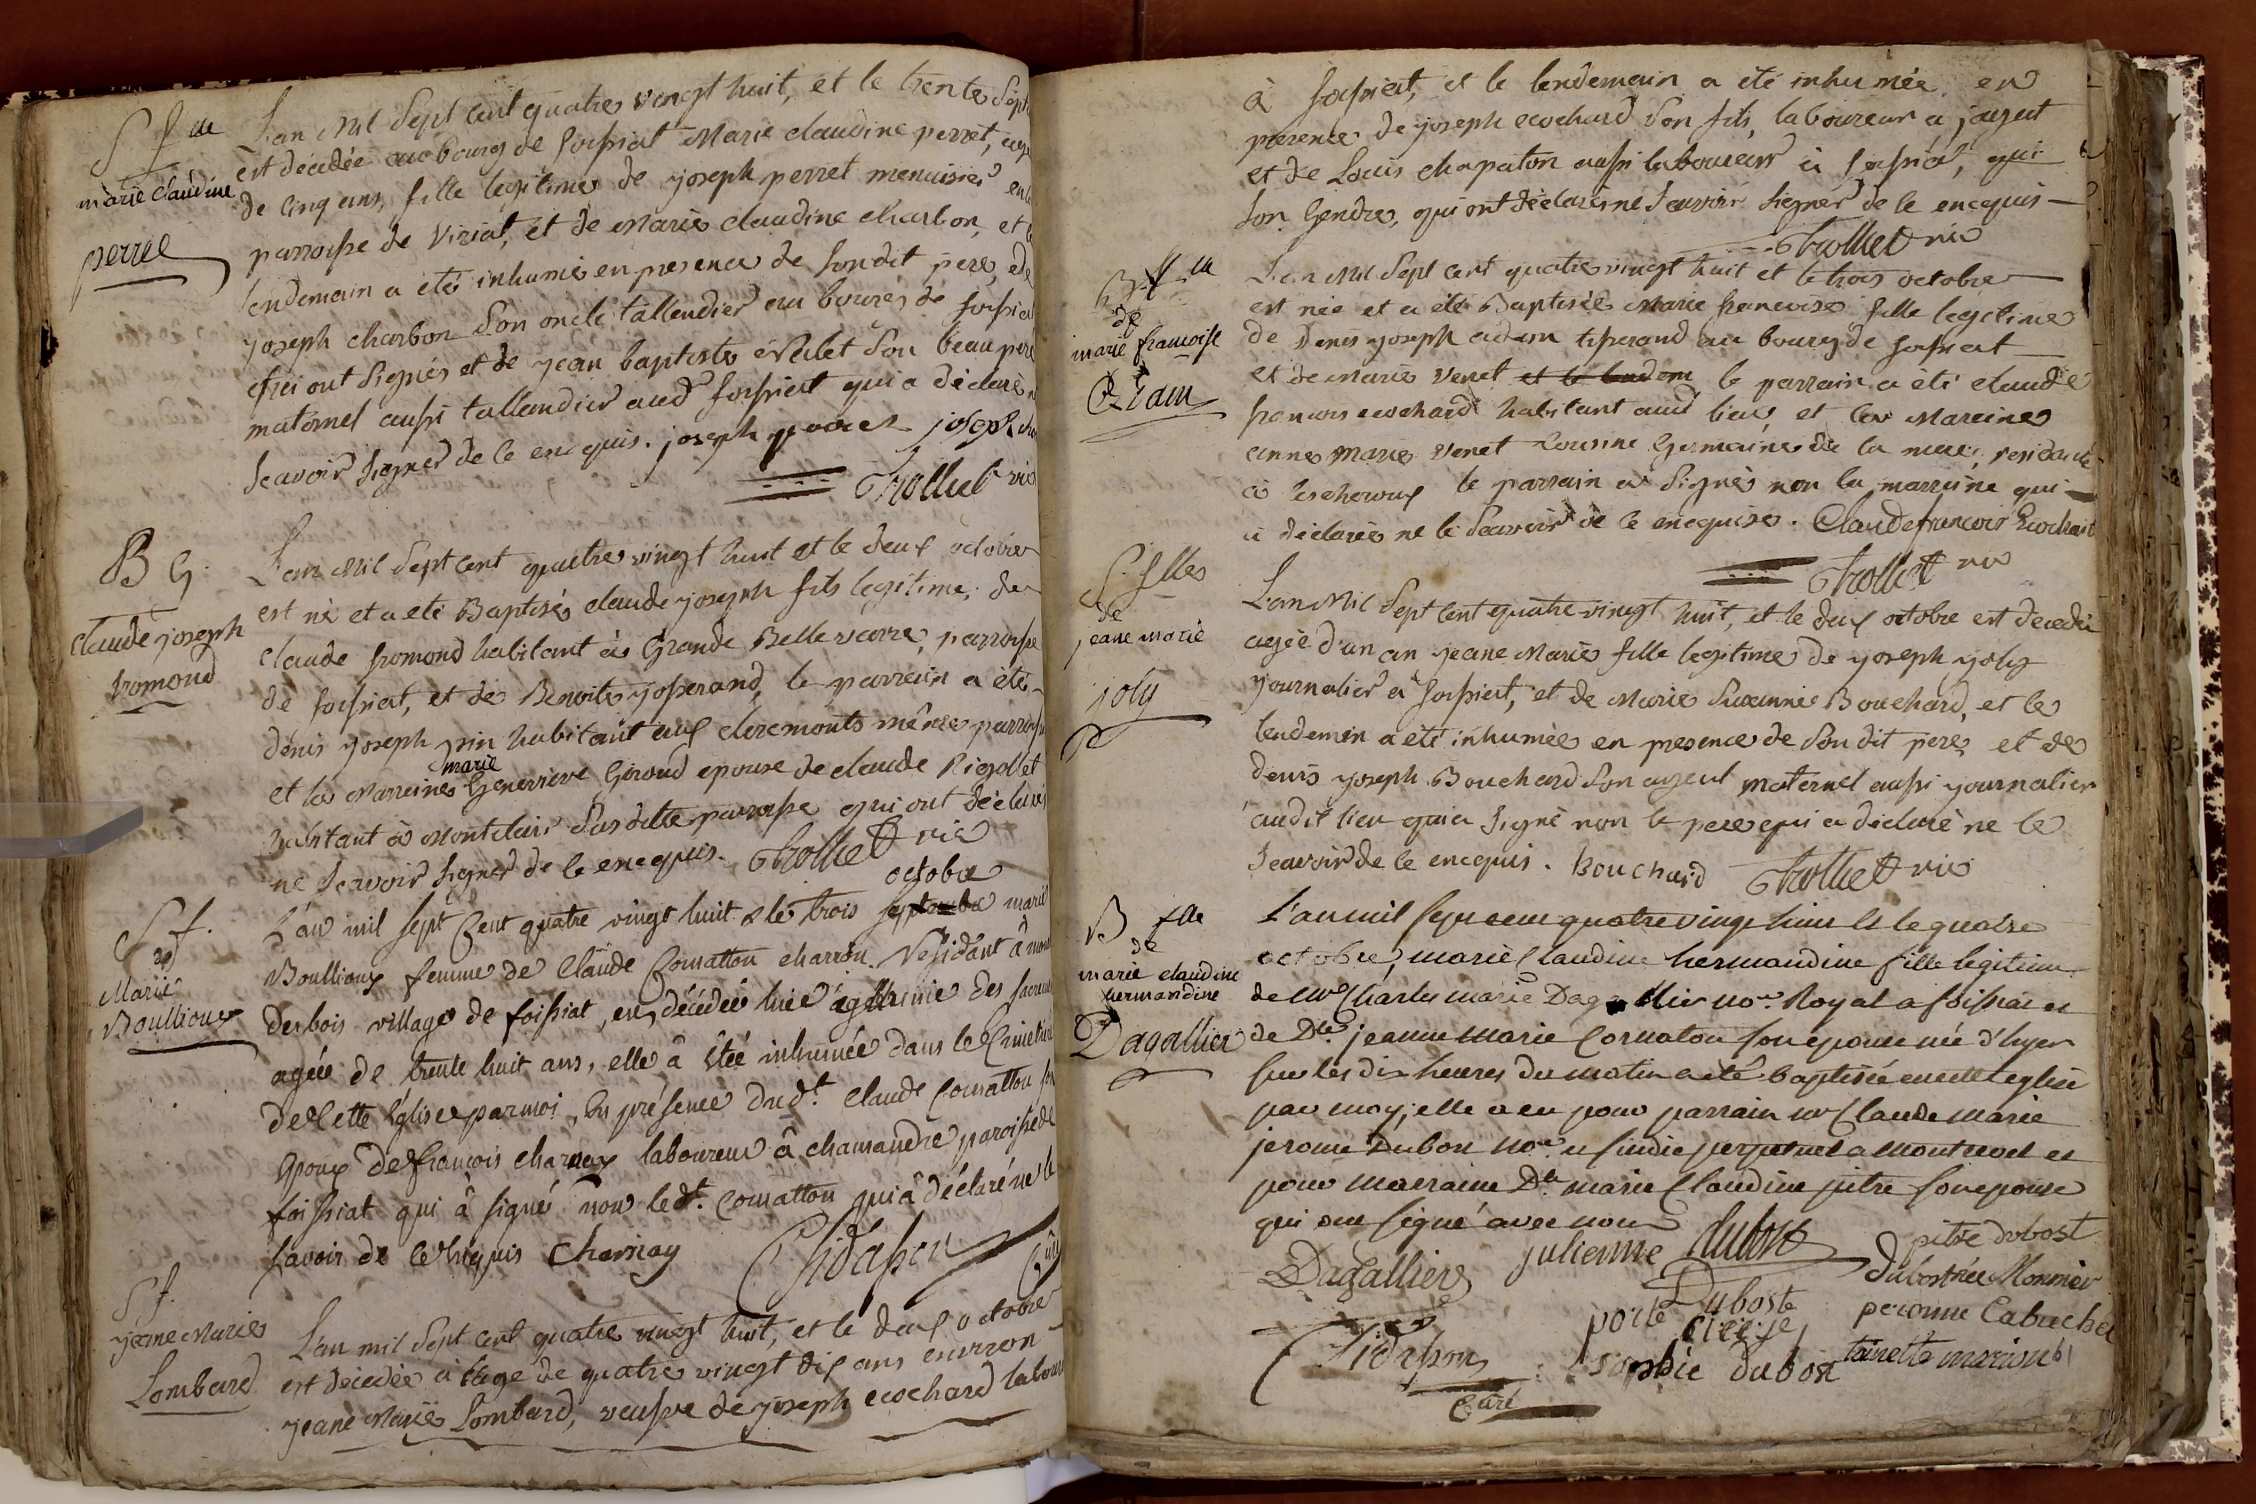 S f lle
marie claudine
perret
L'an Mil Sept Cent quatre vingt huit, et le trente Sept
est décédée au bourg de foissiat Marie claudine perret, agé
de Cinq ans, fille legitime de joseph perret menuisier en la
parroisse de Viriat, et de Marie claudine charbon, et le
lendemain a été inhumée en presence de son dit pere, et de
joseph charbon son oncle tallendier au bourg de foissiat
qui ont Signés et de jean baptiste son beau pere
maternel aussi tallandier aud foissiat qui a déclaré n
Scavoir Signer de ce enquis. joseph perret joseph cha
Trollliet vic
B G.
claude joseph
fromond
L'an Mil Sept Cent quatre vingt huit et le deux octobre
est né et a été Baptisé claude joseph fils legitime, de
claude fromond habitant à Grande Bellevavre, parroisse
de foissiat, et de Benoite josserand, le parrein a été
denis joseph pin habitant aux claremonts même parroisse
et la Marreine marie Genevieve Giroud epouse de claude Rigollet
habitant à Montclair Susditte parroisse qui ont déclaré
ne Scavoir Signer de ce enquis. Trolliet vic
S f.
de
Marie
Boullioux
L'an mil sept Cent quatre vingt huit & le trois septembre octobre marie
Boullioux femme de Claude Cornatton charron Residant à mont
Desbois village de foissiat, est décédée munie des sacrem
agée de trente huit ans, elle à Etée inhumée dans le Cimetiere
De cette Eglise par moi, En présence dud.t Claude Cornatton son
Epoux De françois charnay laboureur à chamandre paroisse de
foissiat qui à signé non led.t Cornatton qui à déclaré ne le
savoir de ce Enquis Charnay Chidason Curé
S f.
jeane Marie
Lombard
L'an mil Sept Cent quatre vingt huit, et le deux octobre
est décédée à l'age de quatre vingt dix ans environ
jeane Marie Lombard, veusve de joseph ecochard labour
à foissiat, et le lendemain a été inhumée en
presence de joseph ecochard son fils, laboureur a jayat
et de Louis chapaton aussi laboureur à foissiat, qui
son Gendre, qui ont déclaré ne Scavoir Signer de ce enquis
Trolliet vic
B f lle
de
marie francoise
Adam
L'an Mil Sept Cent quatre vingt huit et le trois octobre
est née et a été Baptisée Marie francoise fille legitime
de Denis joseph adam tisserand au bourg de foissiat
et de Marie Venet et le lendem le parrain a été claude
francois ecochard habitant aud lieu, et la Marreine
anne Marie Venet Cousine Germaine de la mere, residante
à lescheroux le parrain a Signé non la marreine qui
a déclarée ne le Scavoir de ce enquise. Claudefrancois Ecochard
Trolliet vic
S. flles
de
jeane marie
joly
L'an Mil Sept Cent quatre vingt huit, et le deux octobre est décédée
agée d'un an jeane Marie fille legitime de joseph joly
journalier à foissiat, et de Marie Suzanne Bouchard, et le
lendemin a été inhumée en presence de son dit pere, et de
denis joseph Bouchard son ayeul maternel aussi journalier
audit lieu qui a Signé non le pere qui a déclaré ne le
Scavoir de ce enquis. Bouchard Trolliet vic
B flle
de
marie claudine
hermandine
Dagallier
L'an mil sept cent quatre vingt huit & le quatre
octobre, marie Claudine hermandine fille legitime
de Mr Charles marie Dagallier nore Royal a foissiat et
de Dlle jeanne marie Cornaton son epouse née d'hyer
sur les dix heures du matin a été baptisée en cette eglise
par moy; elle a eu pour parrain mr Claude marie
jerome Dubost nore et sindic perpetuel a montrevel et
pour marraine Dlle marie Claudine pitre son epouse
qui ont signé avec nous
Dagallier julienne dubost pitre dubost
Duboste dubost née Monnier
porte peronne Cabuchet
Chidason Sophie dubost toinette marion
Curé